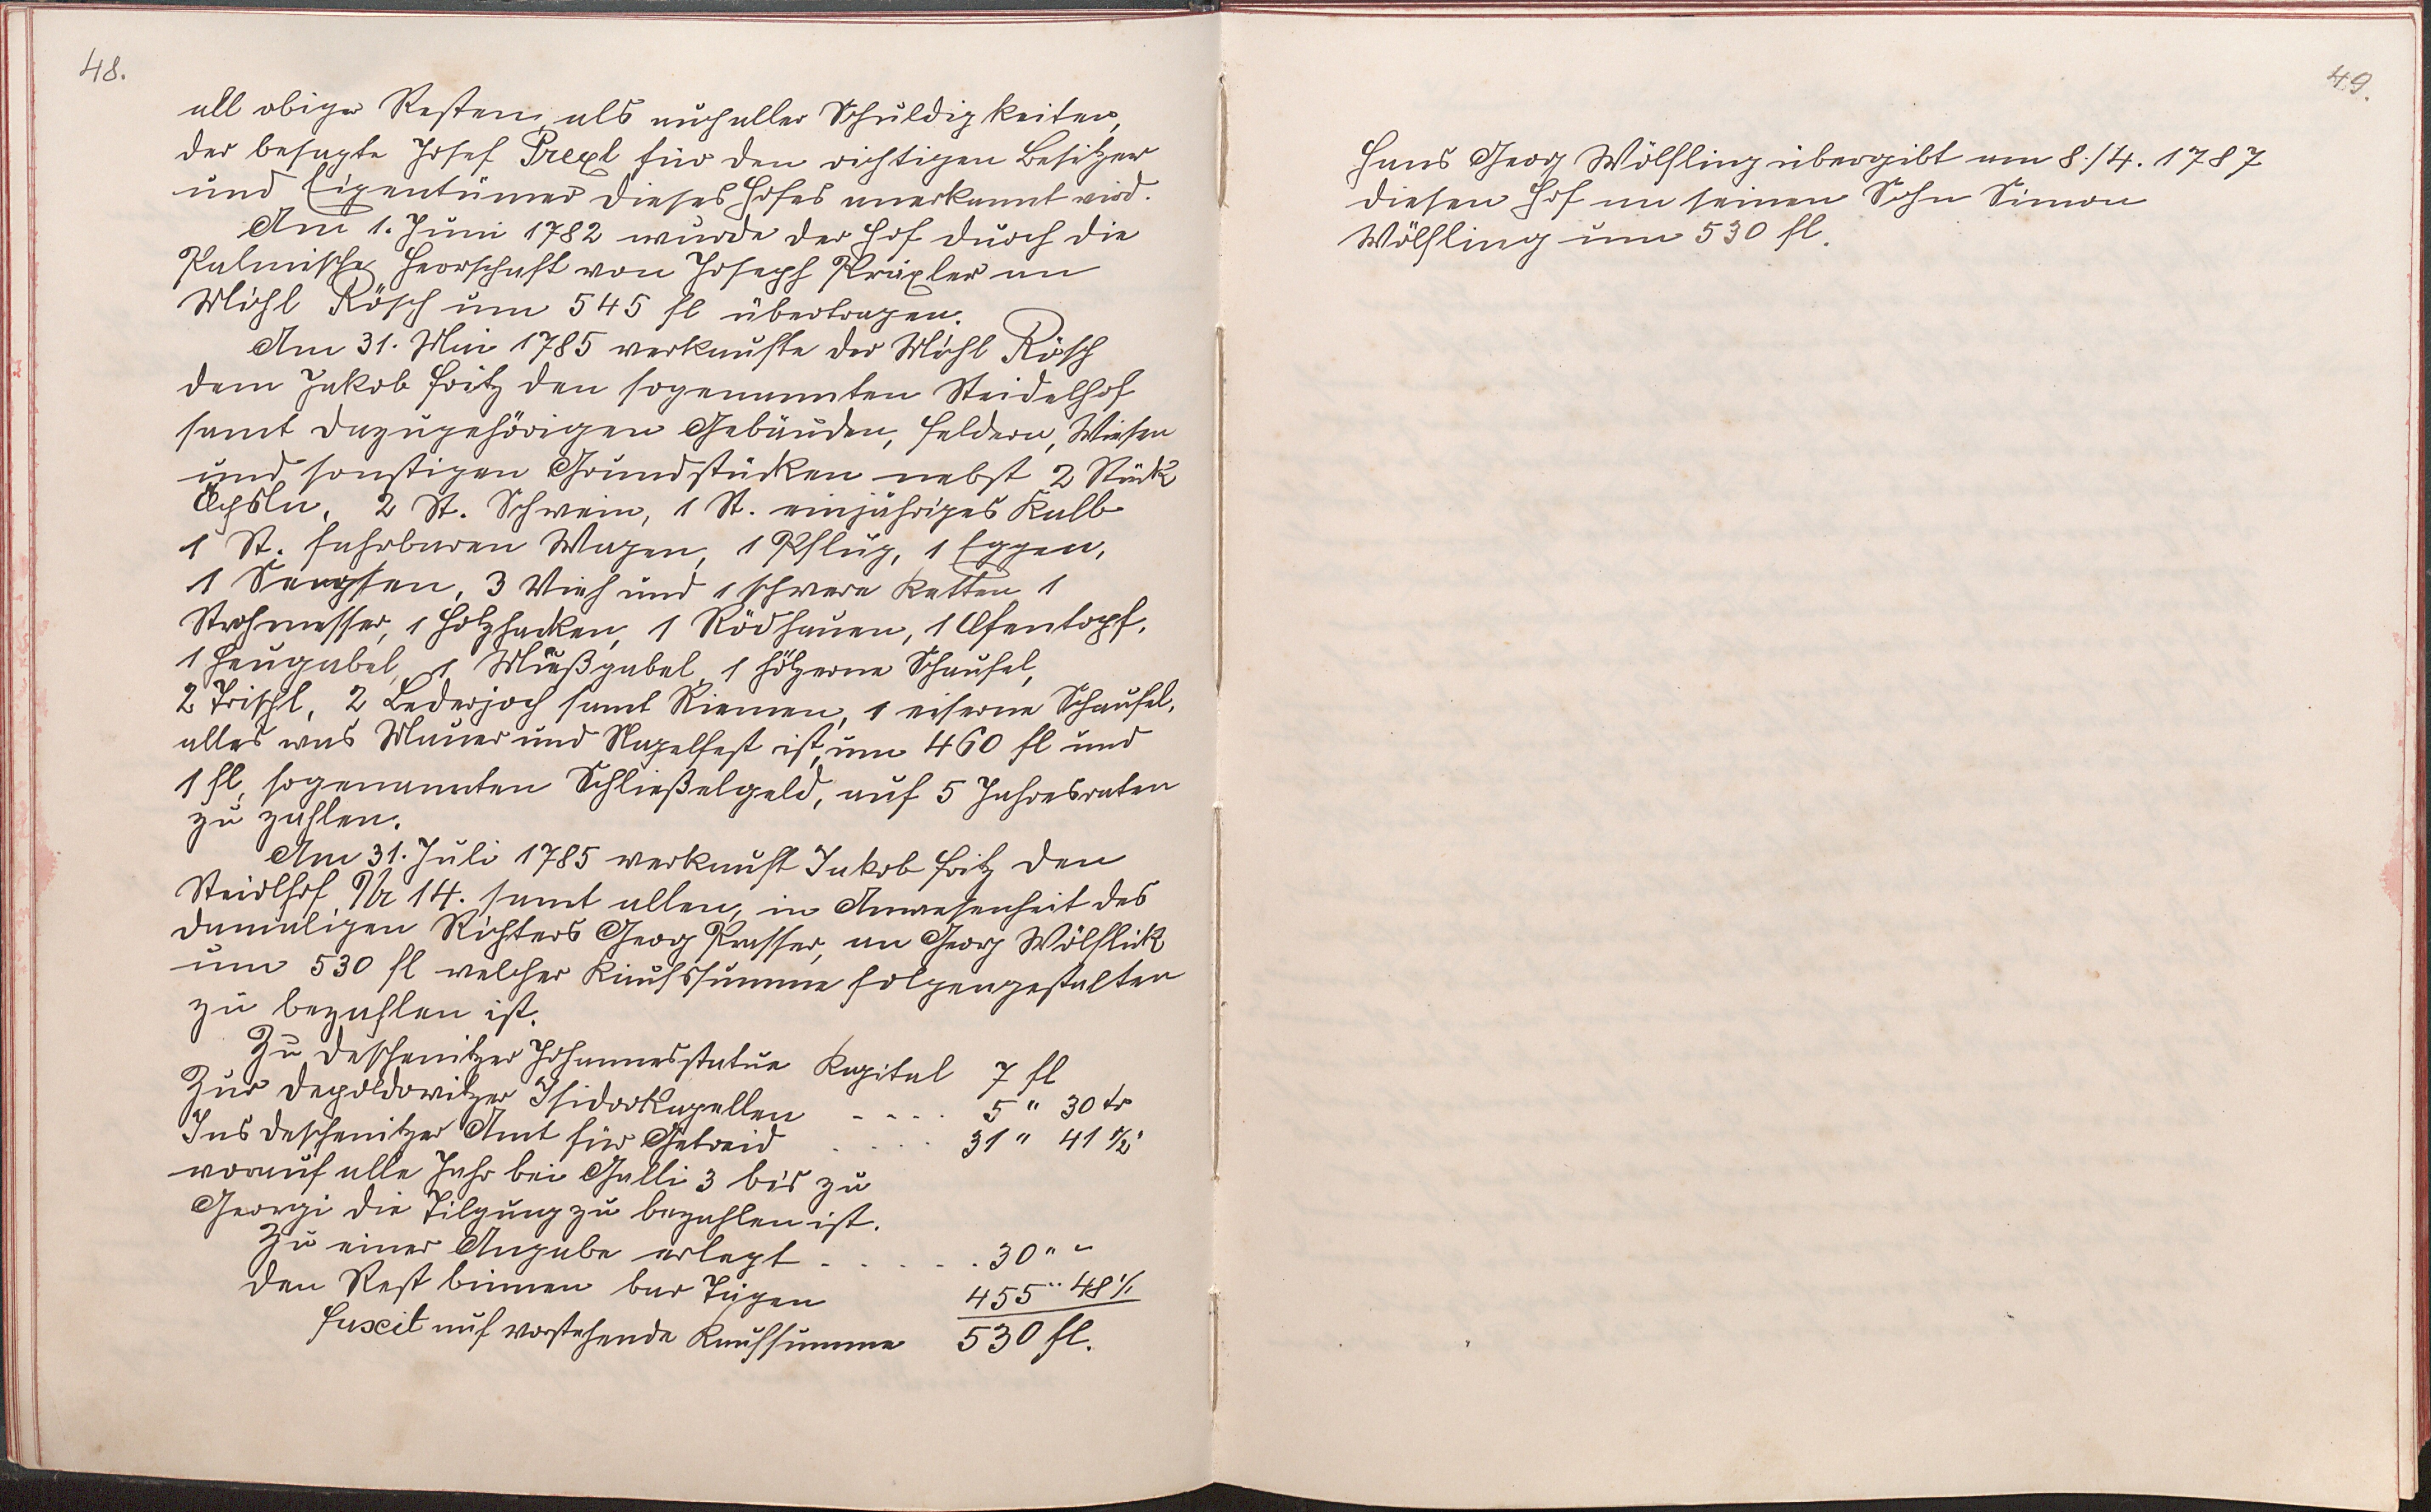 48.
all obiger Resten, als auch aller Schuldigkeiten,
der besagte Josef Prexl für den richtigen Besitzer
und Eigentümer dieses Hofes anerkannt wird.
Am 1. Juni 1782 wurde der Hof durch die
Palmische Herrschaft von Joseph Präxler an
Michl Rösch um 545 fl übertragen.
Am 31. Mai 1785 verkaufte der Michl Rösch
dem Jakob Fritz den sogenannten Steidelhof
samt dazugehörigen Gebäuden, Feldern, Wiesen
und sonstigen Grundstücken nebst 2 Stück
Öchsln, 2 St. Schwein, 1 St. einjähriges Kalb
1 St. fahrbaren Wagen, 1 Pflug, 1 Eggen,
1 Sengsten, 3 Vieh und 1 schwere Ketten 1
Strohmesser, 1 Holzhacken, 1 Rödhauen, 1 Ofentopf,
1 Heugabel, 1 Mießgabel, 1 hölzerne Schaufel,
2 Trischl, 2 Lederjoch samt Riemen, 1 eiserne Schaufel,
alles was Mauer und Nagelfest ist, um 460 fl und
1 fl, sogenannten Schließelgeld, auf 5 Jahresraten
zu zahlen.
Am 31. Juli 1785 verkauft Jakob Fritz den
Steidlhof Nr 14. samt allen, in Anwesenheit des
damaligen Richters Georg Prasser, an Georg Wölflick
um 530 fl welcher Kaufssumme folgengestalten
zu bezahlen ist.
Zu Deschenitzer Johannesstatue Kapital 7 fl
Zur Depoldowitzer Isidorkapellen - - - . 5 " 30 kr
Ins Deschenitzer Amt für Getreid . . . . 31 " 41 1/2 "
worauf alle Jahr bei Galli 3 bis zu
Georgi die Tilgung zu bezahlen ist.
Zu einer Angabe erlegt . . . . . . 30 " "
den Rest binnen bar Tägen 455 " 48 1/2
Facit auf vorstehende Kaufsumme 530 fl.
49.
Hans Georg Wölfling übergibt am 8./4. 1787
diesen Hof an seinen Sohn Simon
Wölfling um 530 fl.